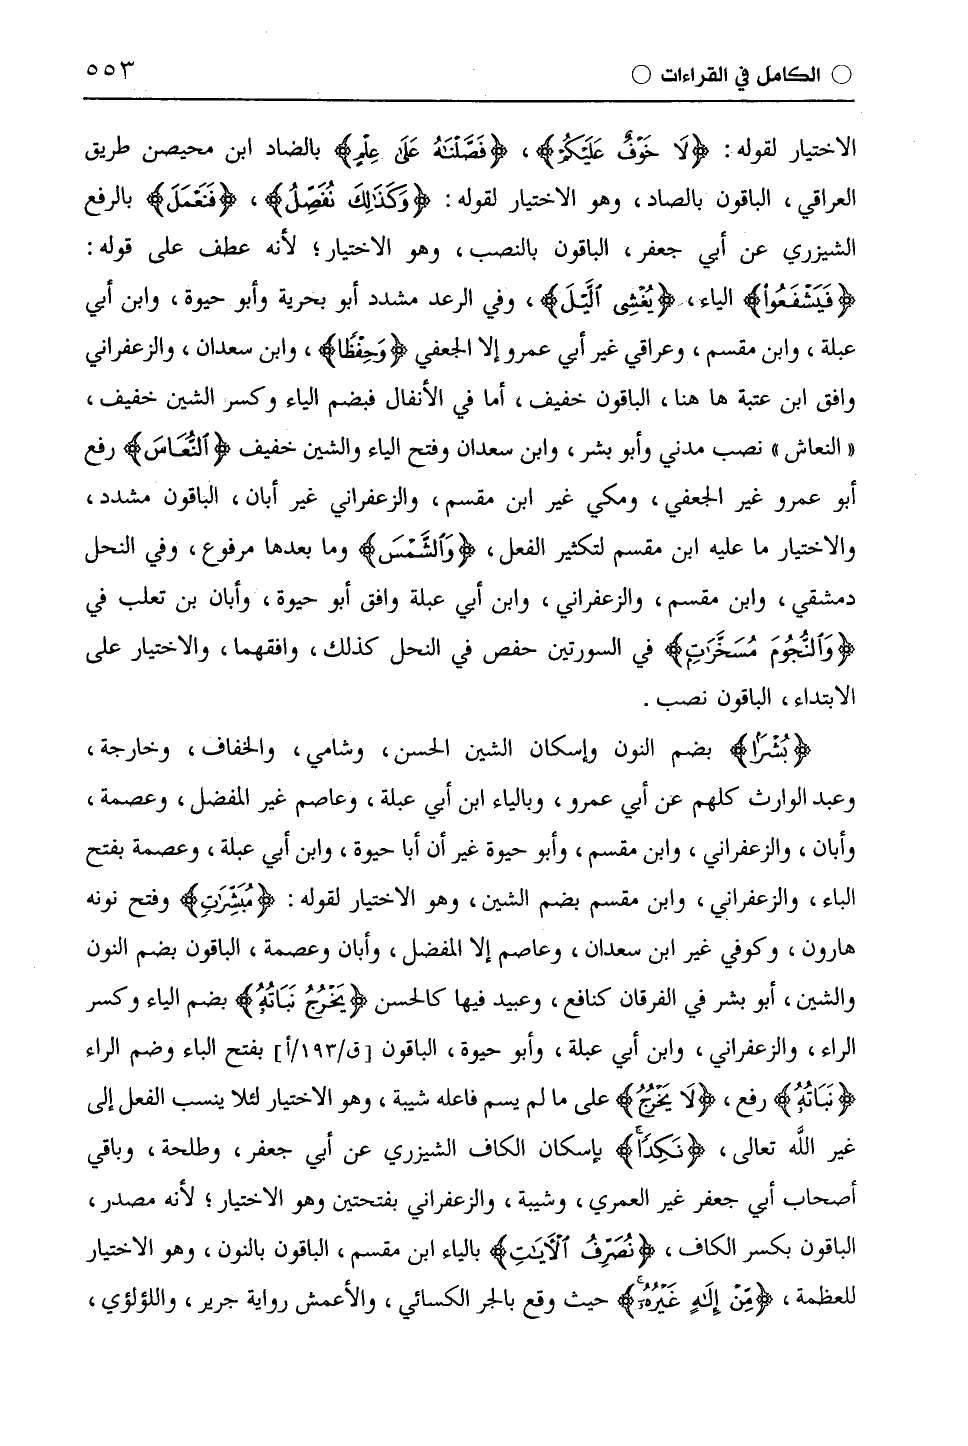 ○ الكامل في القراءات ○ ٥٥٣
الاختيار لقوله: ﴿لَا خَوْفٌ عَلَيْكُمْ﴾، ﴿فَصَّلْنَاهُ عَلَىٰ عِلْمٍ﴾ بالضاد ابن محيصن طريق
العراقي، الباقون بالصاد، وهو الاختيار لقوله: ﴿وَكَذَٰلِكَ نُفَصِّلُ﴾، ﴿فَنَعْمَلَ﴾ بالرفع
الشيزري عن أبي جعفر، الباقون بالنصب، وهو الاختيار؛ لأنه عطف على قوله:
﴿فَيَشْفَعُوا﴾ الياء، ﴿يُغْشِي ٱلَّيْلَ﴾، وفي الرعد مشدد أبو بحرية وأبو حيوة، وابن أبي
عبلة، وابن مقسم، وعراقي غير أبي عمرو إلا الجعفي ﴿وَحِفْظًا﴾، وابن سعدان، والزعفراني
وافق ابن عتبة ها هنا، الباقون خفيف، أما في الأنفال فبضم الياء وكسر الشين خفيف،
«النعاش» نصب مدني وأبو بشر، وابن سعدان وفتح الياء والشين خفيف ﴿ٱلنُّعَاسَ﴾ رفع
أبو عمرو غير الجعفي، ومكي غير ابن مقسم، والزعفراني غير أبان، الباقون مشدد،
والاختيار ما عليه ابن مقسم لتكثير الفعل، ﴿وَٱلشَّمْسَ﴾ وما بعدها مرفوع، وفي النحل
دمشقي، وابن مقسم، والزعفراني، وابن أبي عبلة وافق أبو حيوة، وأبان بن تعلب في
﴿وَٱلنُّجُومَ مُسَخَّرَٰتٍ﴾ في السورتين حفص في النحل كذلك، وافقهما، والاختيار على
الابتداء، الباقون نصب.
﴿بُشْرًا﴾ بضم النون وإسكان الشين الحسن، وشامي، والخفاف، وخارجة،
وعبد الوارث كلهم عن أبي عمرو، وبالياء ابن أبي عبلة، وعاصم غير المفضل، وعصمة،
وأبان، والزعفراني، وابن مقسم، وأبو حيوة غير أن أبا حيوة، وابن أبي عبلة، وعصمة بفتح
الباء، والزعفراني، وابن مقسم بضم الشين، وهو الاختيار لقوله: ﴿مُبَشِّرَٰتٍ﴾ وفتح نونه
هارون، وكوفي غير ابن سعدان، وعاصم إلا المفضل، وأبان وعصمة، الباقون بضم النون
والشين، أبو بشر في الفرقان كنافع، وعبيد فيها كالحسن ﴿يَخْرُجُ نَبَاتُهُۥ﴾ بضم الياء وكسر
الراء، والزعفراني، وابن أبي عبلة، وأبو حيوة، الباقون [ق/١٩٣/أ] بفتح الباء وضم الراء
﴿نَبَاتُهُۥ﴾ رفع، ﴿لَا يَخْرُجُ﴾ على ما لم يسم فاعله شيبة، وهو الاختيار لئلا ينسب الفعل إلى
غير اللَّه تعالى، ﴿نَكِدًا﴾ بإسكان الكاف الشيزري عن أبي جعفر، وطلحة، وباقي
أصحاب أبي جعفر غير العمري، وشيبة، والزعفراني بفتحتين وهو الاختيار؛ لأنه مصدر،
الباقون بكسر الكاف، ﴿نُصَرِّفُ ٱلْآيَٰتِ﴾ بالياء ابن مقسم، الباقون بالنون، وهو الاختيار
للعظمة، ﴿مِّنْ إِلَٰهٍ غَيْرُهُۥ﴾ حيث وقع بالجر الكسائي، والأعمش رواية جرير، واللؤلؤي،